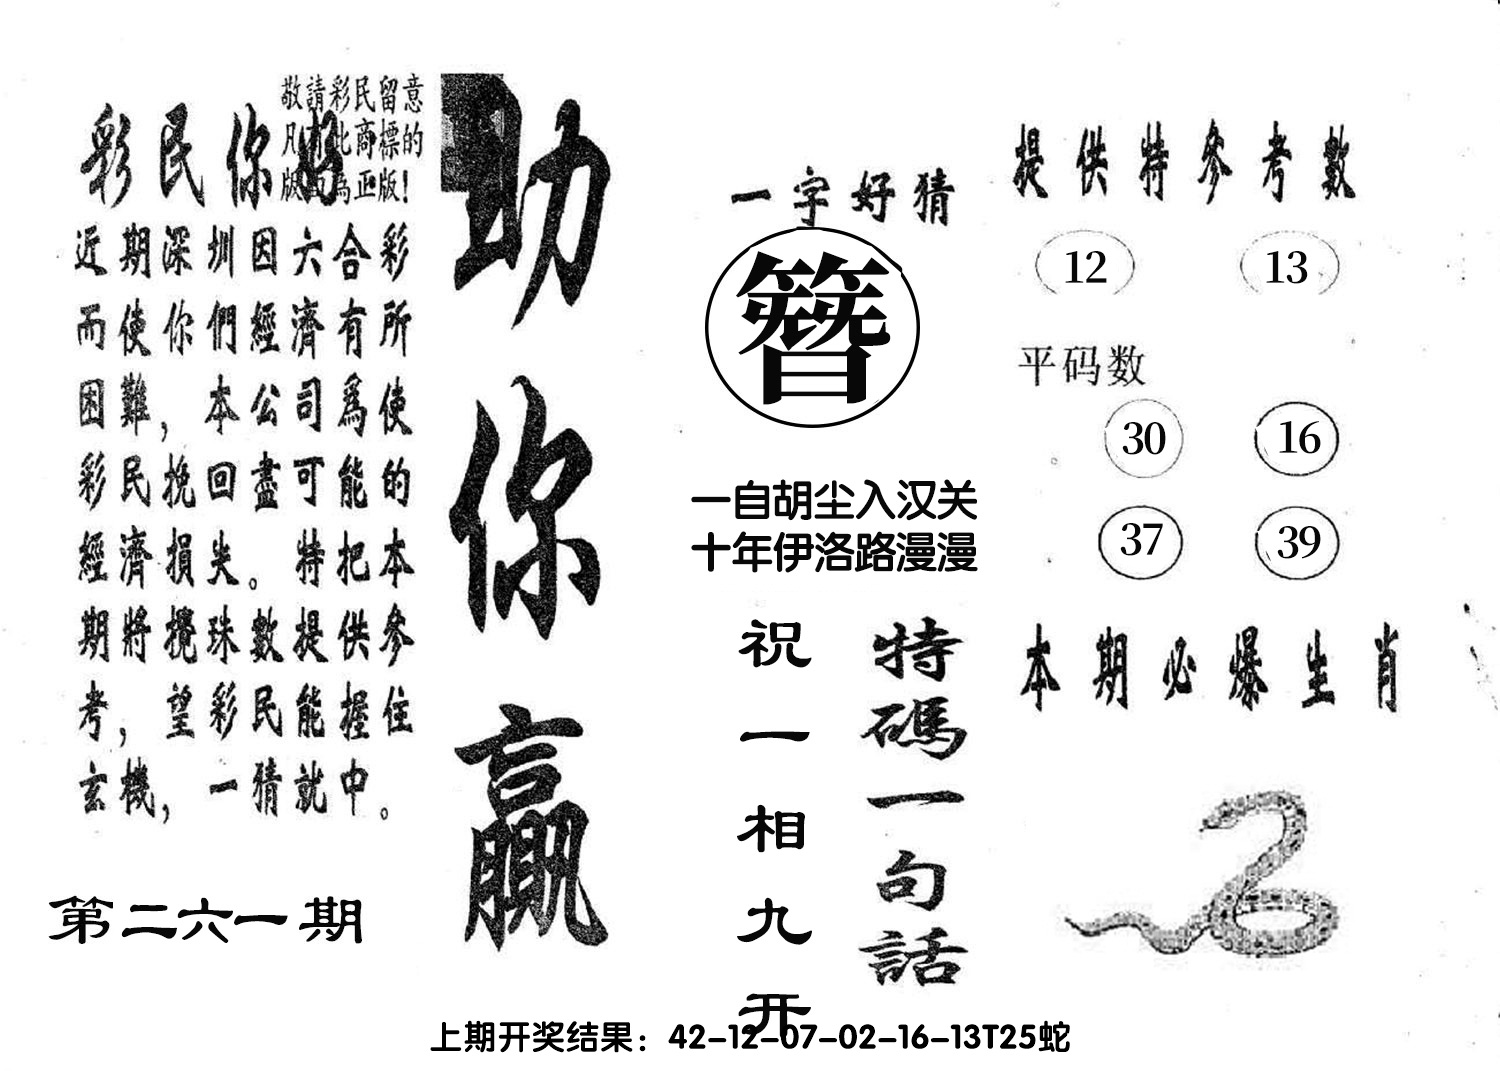 敬請彩民留意
凡有此商標的
版面為正版！
彩民你好
近期深圳因六合彩
而使你們經濟有所
困難，本公司爲使
彩民挽回盡可能的
經濟損失。特把本
期將攪珠數提供參
考，望彩民能握住
玄機，一猜就中。
第二六一期
助你贏
一字好猜
簪
一自胡尘入汉关
十年伊洛路漫漫
特碼一句話
祝一相九开
提供特參考數
12 13
平码数
30 16
37 39
本期必爆生肖
上期开奖结果：42-12-07-02-16-13T25蛇